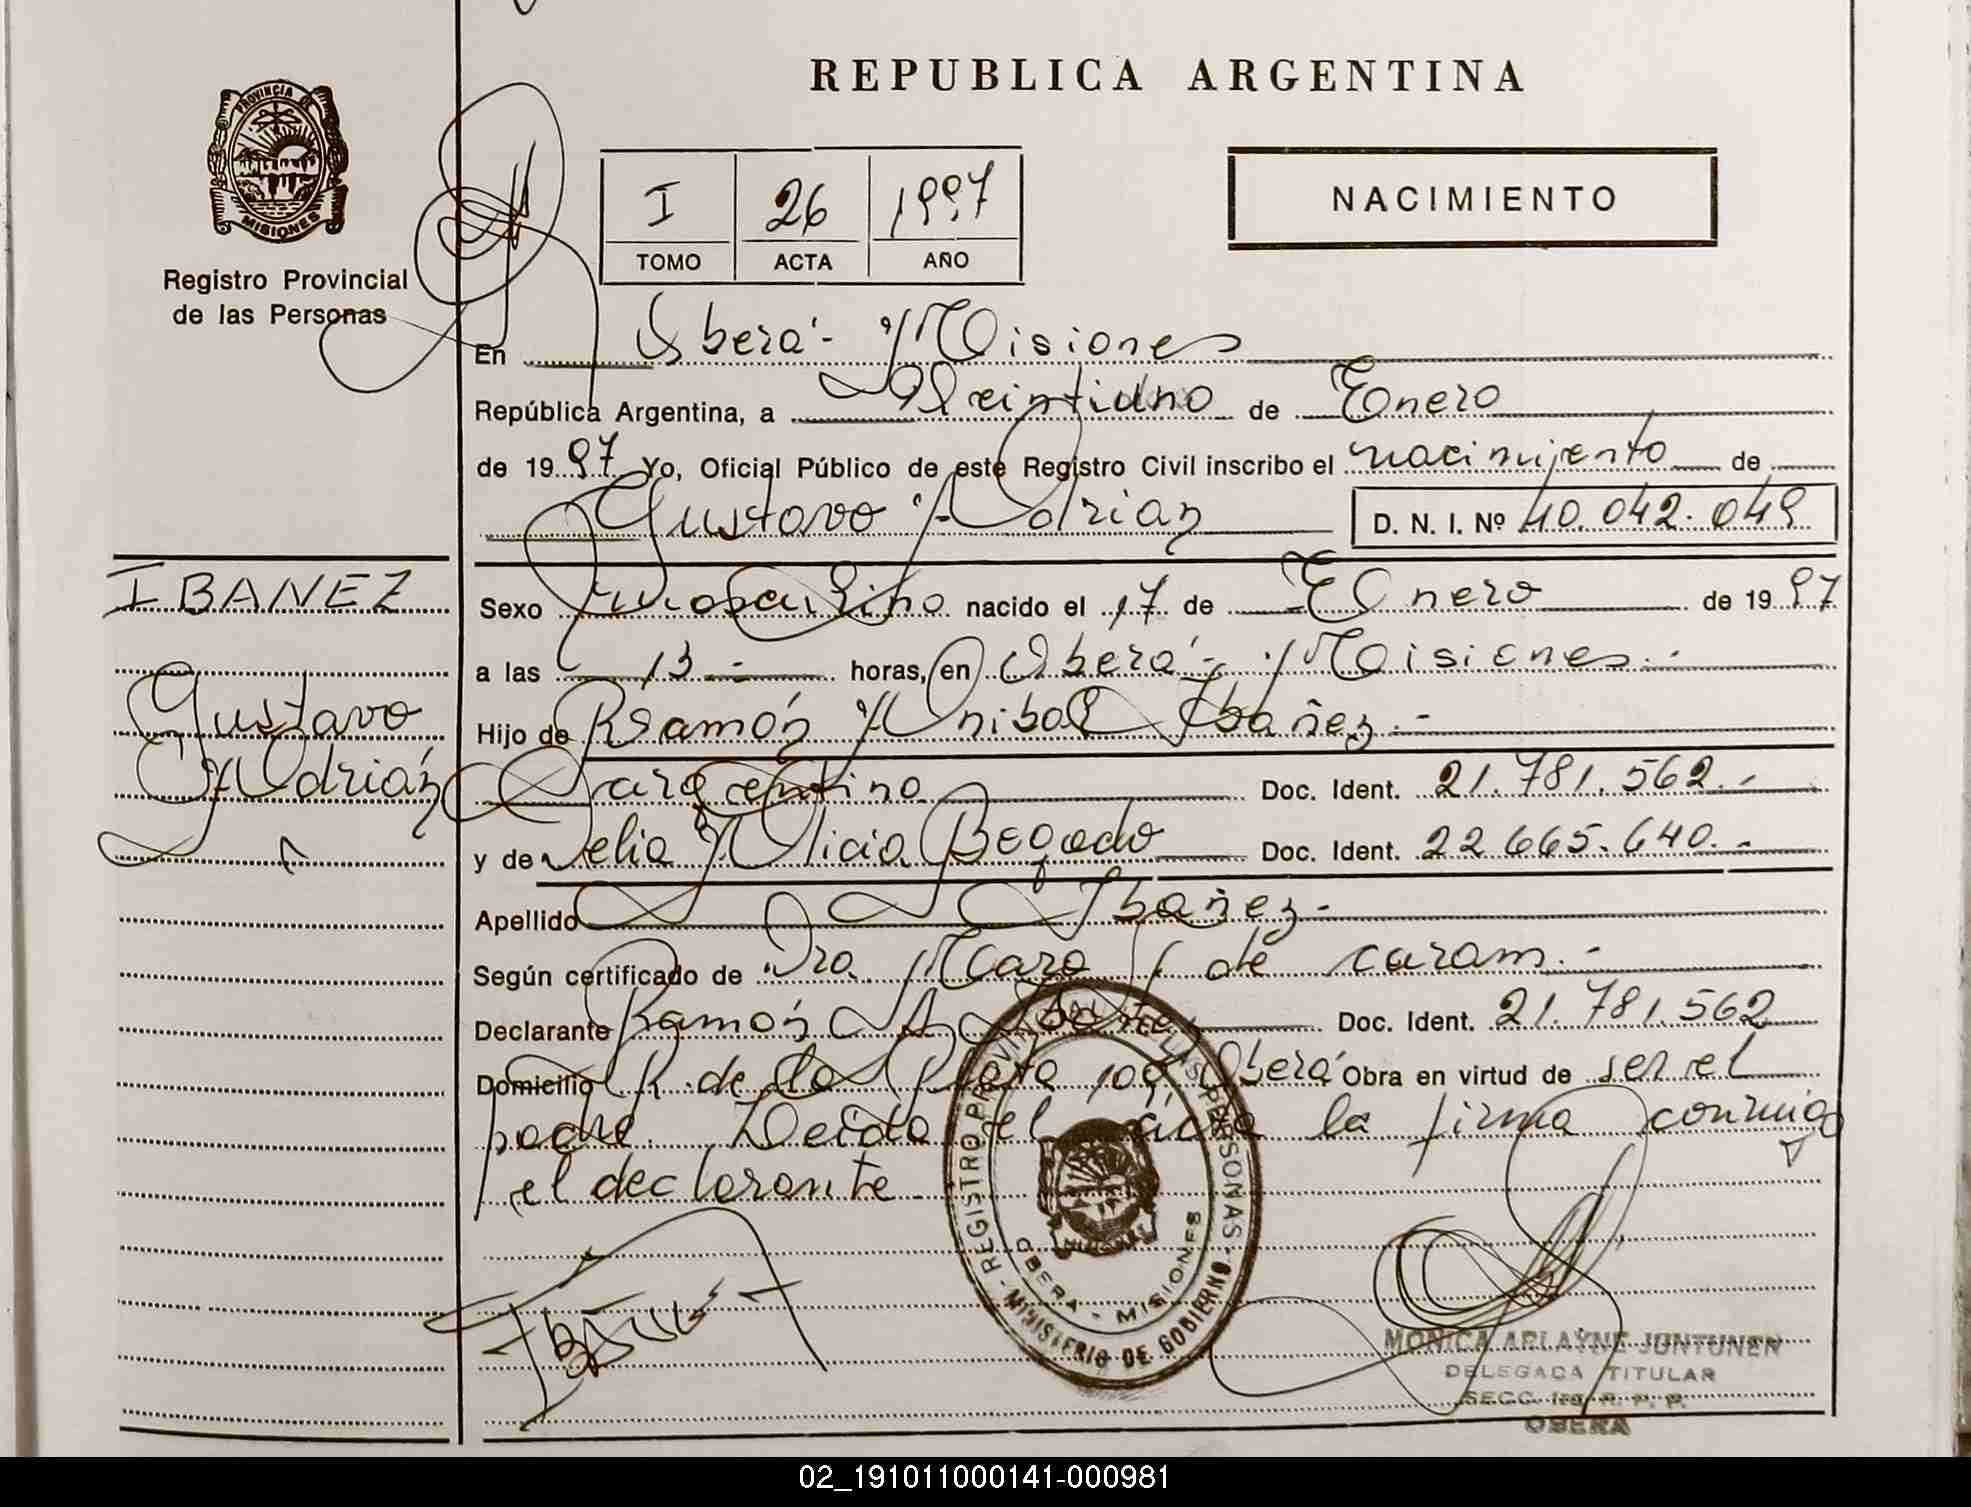 REPUBLICA ARGENTINA
PROVINCIA DE
MISIONES
Registro Provincial
de las Personas
I 26 1997
TOMO ACTA AÑO
NACIMIENTO
En Oberá - Misiones
República Argentina, a Veintiuno de Enero
de 1997 Yo, Oficial Público de este Registro Civil inscribo el nacimiento de
Gustavo Adrián D. N. I. Nº 40.042.049
IBAÑEZ
Gustavo
Adrián
Sexo masculino nacido el 17 de Enero de 1997
a las 13 - horas, en Oberá - Misiones.-
Hijo de Ramón Anibal Ibañez.-
argentino Doc. Ident. 21.781.562.-
y de Delia Alicia Doc. Ident. 22.665.640.-
Apellido Ibañez-
Según certificado de Dra. de caram.-
Declarante Ramón A. Ibañez Doc. Ident. 21.781.562
Domicilio R. de la Plata 109 Oberá Obra en virtud de ser el
padre. Leída el acta la firma conmigo
el declarante
REGISTRO PROVINCIAL DE LAS PERSONAS
OBERA - MISIONES
MINISTERIO DE GOBIERNO
MONICA ARLAYNE JUNTUNEN
DELEGADA TITULAR
OBERA
02_191011000141-000981